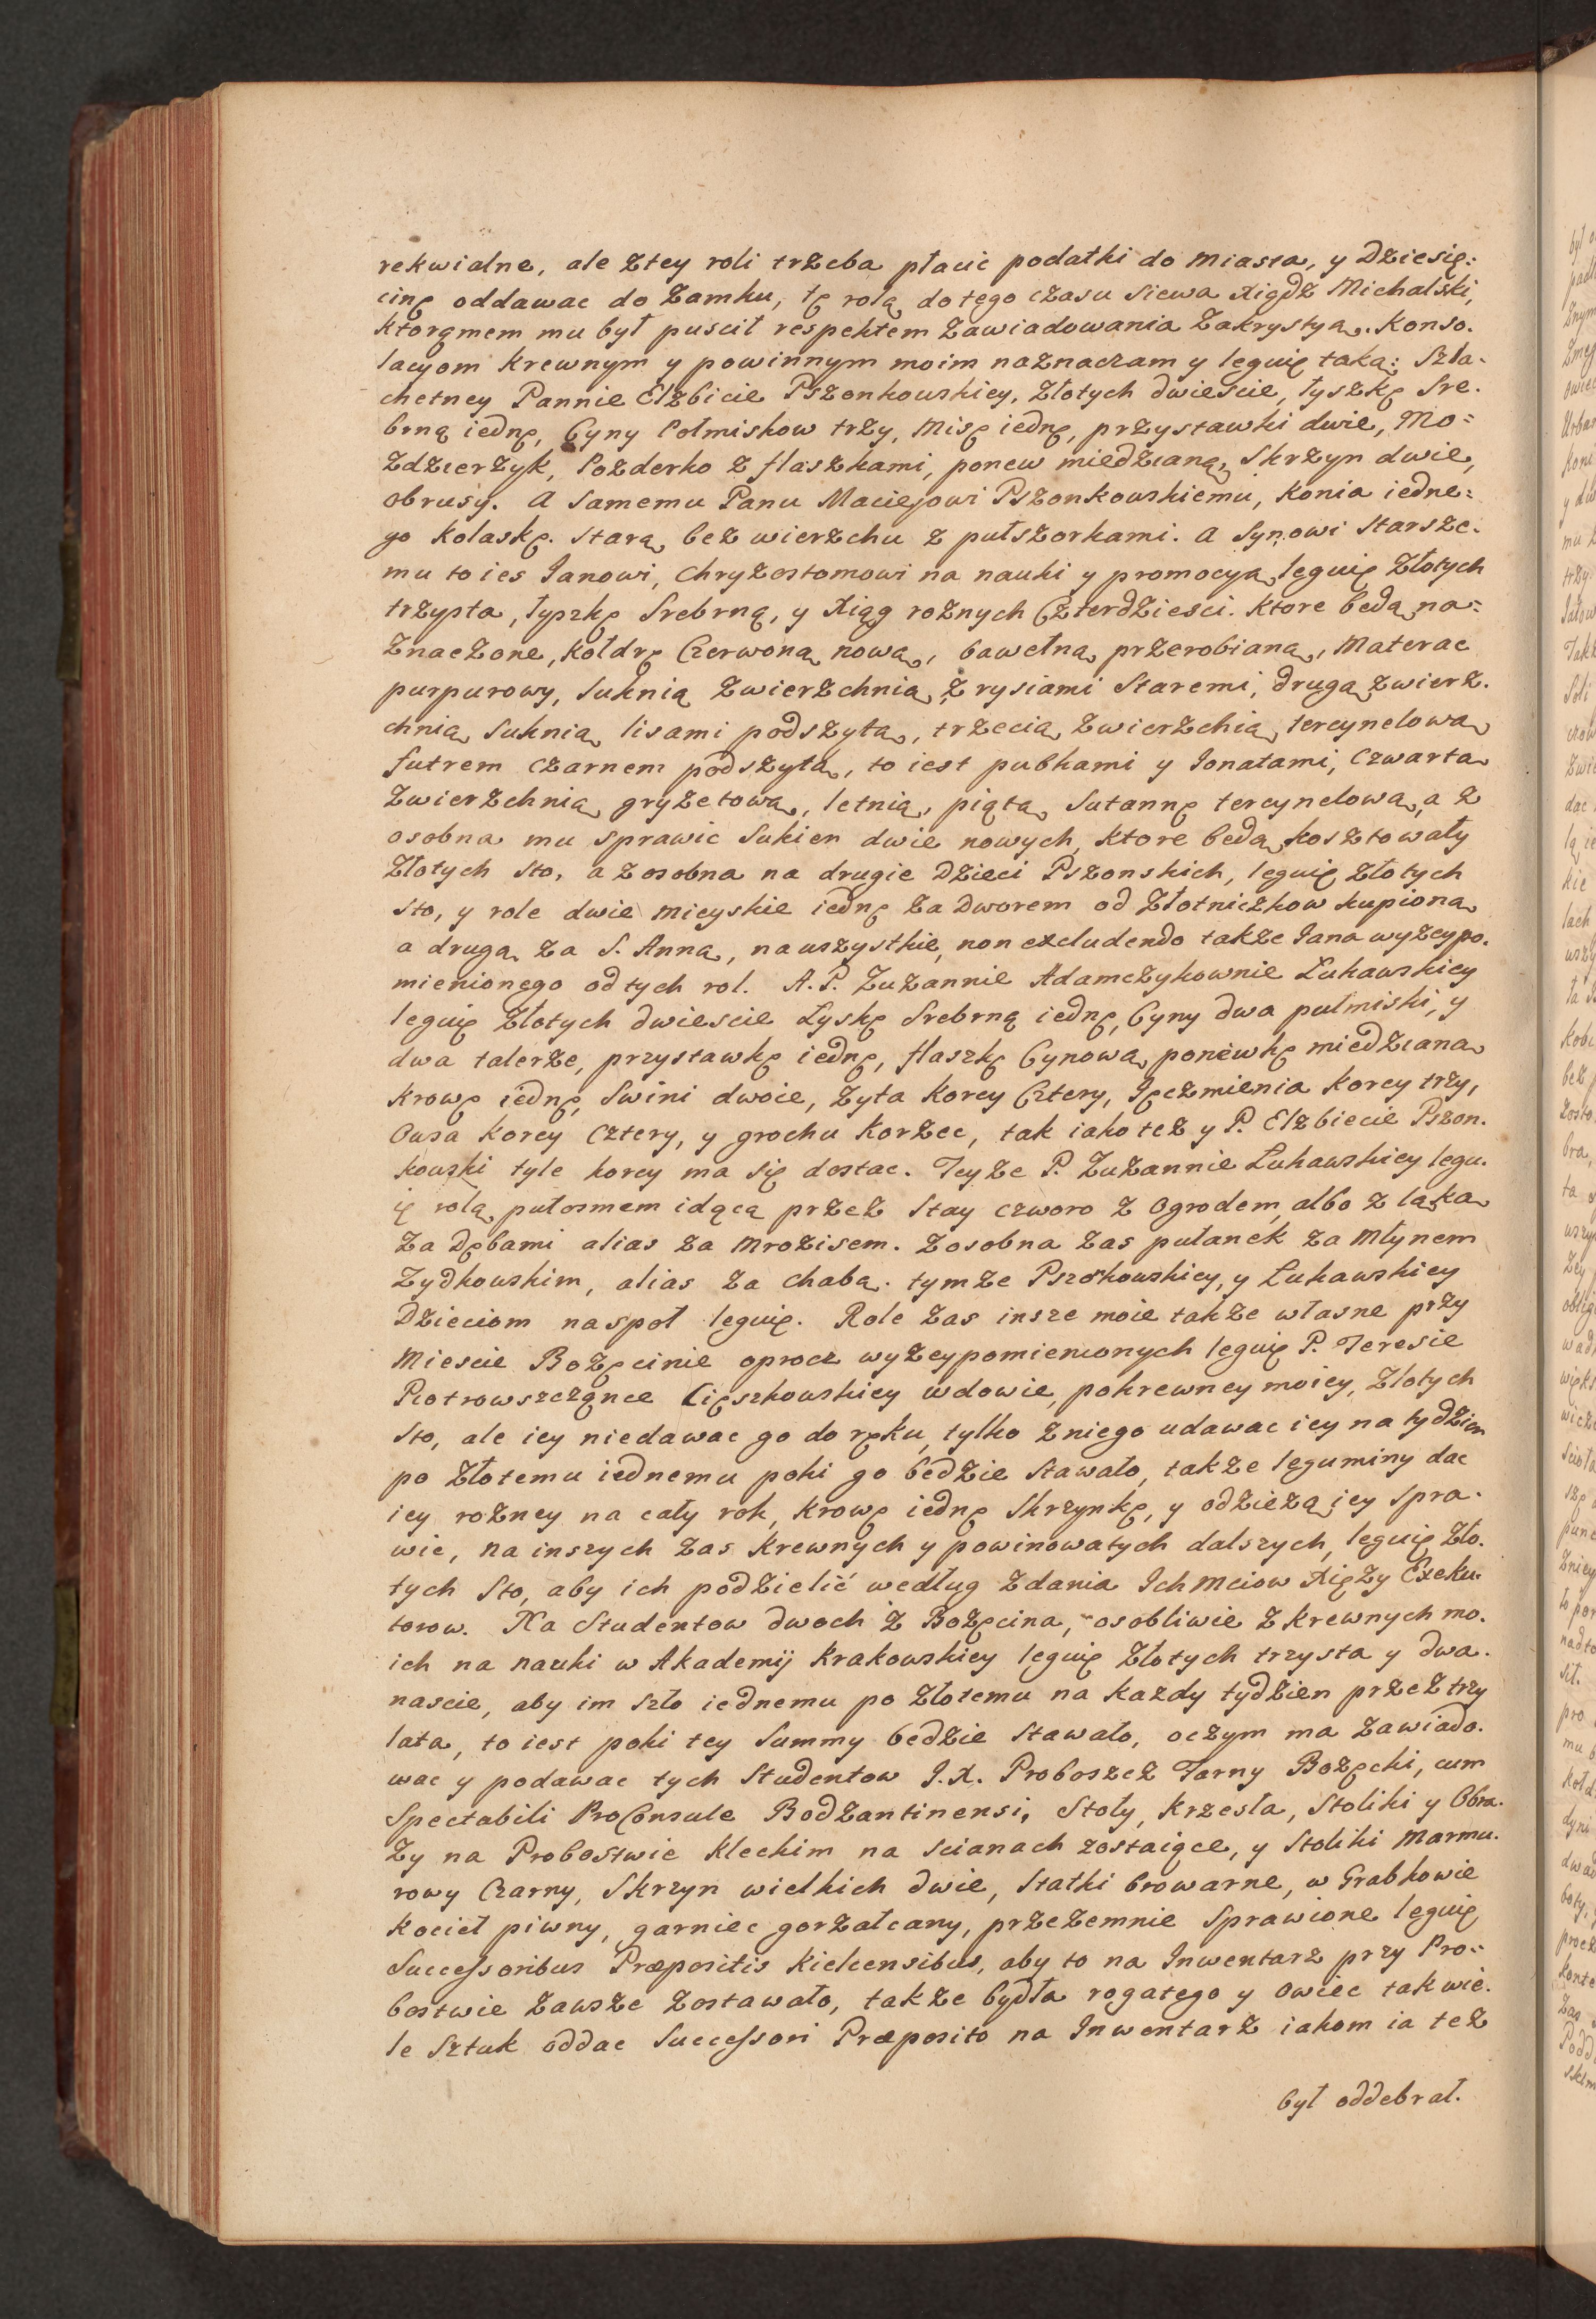 rekwialne, ale z tey roli trzeba płacic podatki do Miasta, y Dziesię:
cinę oddawac do Zamku, tę rolą do tęgo czasu siewa Xiądz Michalski,
ktorąmem mu był puscił respektem Zawiadowania Zakrystyą. Konso.
lacyom krewnym y powinnym moim naznaczam y leguię taką: Szla-
chetney Pannie Elzbicie Pszonkowskiey, Złotych dwieście, łyszkę Sre.
brną iednę, Cyny Połmiskow trzy, Misę iednę, przystawki dwie, Mo=
zdzierzyk, Pozderko z flaszkami, ponew miedzianą, Skrzyn dwie,
obrusy. A Samemu Panu Maciejowi Pszonkowskiemu, Konia iedne=
go kolaskę. Starą bez wierzchu z pułszorkami. A Synowi Starsze.
mu to ies Janowi, Chryzostomowi na nauki y promocyą leguię Złotych
trzysta, łyszkę Srebrną, y Xiąg rożnych Czterdziesci. ktore będą na=
znaczone, kołdrę Czerwoną nową, bawełną przerobianą, Materac
purpurowy, Suknią zwierzchnią z rysiami Staremi, drugą zwierz.
chnią Suknią lisami podszytą, trzecią zwierzchią tercynelową
futrem czarnem podszytą, to iest pubkami y Jonatami, Czwartą
zwierzchnią gryzetową, letnią, piątą Sutannę tercynelową, a z
osobna mu sprawic Sukien dwie nowych, ktore będą kosztowały
Złotych Sto, a zosobna na drugie Dzieci Pszonskich, leguię Złotych
Sto, y role dwie Mieyskie iednę za Dworem od Złotniczkow kupioną
a drugą za S. Anną, na wszystkie, non excludendo także Jana wyzeypo.
mienionego od tych rol. A. P. Zuzannie Adamczykownie Łukawskiey
leguię Złotych dwiescie Łyskę Srebrną iednę, Cyny dwa pulmiski, y
dwa talerze, przystawkę iednę, flaszkę Cynową, poniewkę miedzianą
Krowę iednę, Swini dwoie, Zyta korcy Cztery, Jęczmienia korcy trzy,
Owsa korcy Cztery, y grochu korzec, tak iako też y P. Elzbiecie Pszon.
kowski tyle korcy ma się dostac. Teyże P. Zuzannie Łukawskiey legu.
ię rolą pułosmem idącą przez Stay czworo z Ogrodem, albo z łąką
za Dębami alias za Mrozisem. Zosobna zas pułanek za Młynem
Zydkowskim, alias za Chabą. tymze Pszonkowskiey, y Łukawskiey
Dzieciom na społ leguię. Role zas insze moie także własne przy
Miescie Bożęcinie oprocz wyzeypomienionych leguię P. Teresie
Piotrowszczęnce Cięszkowskiey wdowie, pokrewney moiey, Złotych
Sto, ale iey niedawac go do ręku, tylko zniego udawac iey na tydzien
po Złotemu iednemu poki go bedzie Stawało, także leguminy dac
iey rożney na cały rok, krowę iednę Skrzynkę, y odzieżą iey spra.
wić, na inszych zas krewnych y powinowatych dalszych, leguię Zło.
tych Sto, aby ich podzielić według zdania Ich Mciow Xięży Exeku.
torow. Na Studentow dwoch z Bożęcina, osobliwie z krewnych mo.
ich na nauki w Akademij Krakowskiey leguię Złotych trzysta y dwa.
nascie, aby im szło iednemu po Złotemu na każdy tydzien przez trzy
lata, to iest poki tey Summy bedzie Stawało, oczym ma zawiado.
wac y podawac tych Studentow J. X. Proboszcz Tarny Bożęcki, cum
Spectabili ProConsule Bodzantinensi, Stoły, krzesła, Stoliki y Obra.
zy na Probostwie Kleckim na scianach zostaiące, y Stoliki Marmu.
rowy Czarny, Skrzyn wielkich dwie, Statki browarne, w Grabkowie
kocieł piwny, garniec gorzałcany, przezemnie Sprawione leguię
Successoribus Præpositis Kielcensibus, aby to na Inwentarz przy Pro=
bostwie zawsze zostawało, także bydła rogatego y owiec tak wie.
le Sztuk oddac Successori Præposito na Inwentarz iakom ia też
był oddebrał.